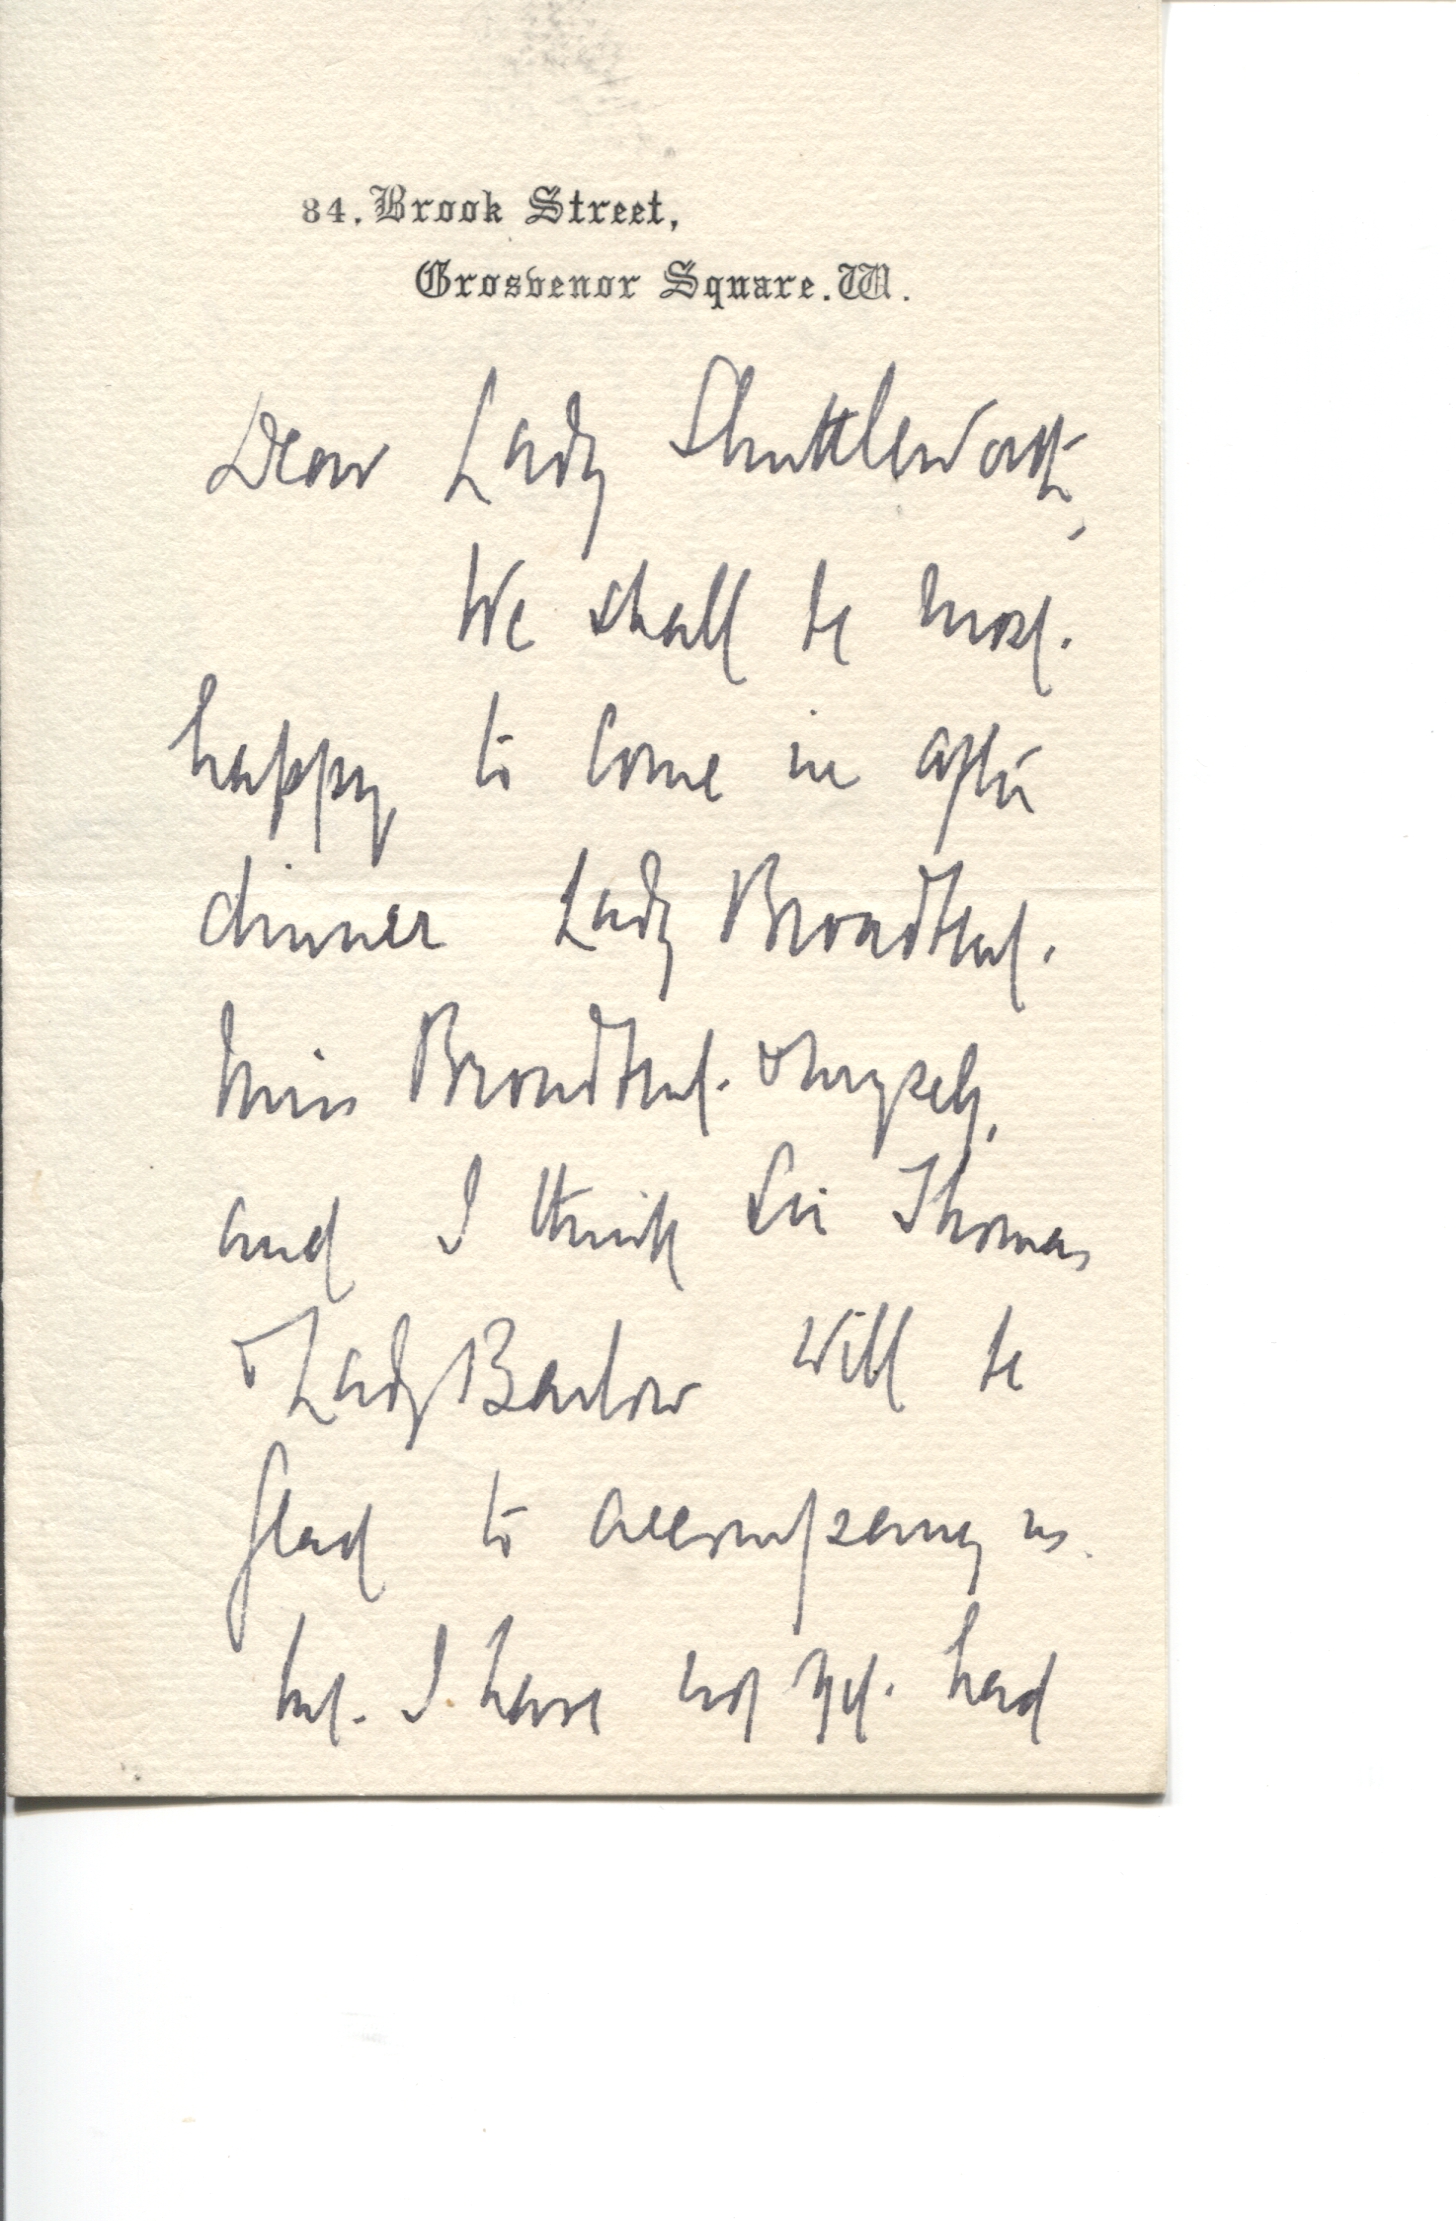 84, Brook Street,
Grosvenor Square. W.
Dear Lady Shuttleworth,
We shall be most
happy to come in after
dinner Lady Broadbent
Miss Broadbent & myself,
and I think Sir Thomas
& Lady Barlow will be
glad to accompany us.
but I have not yet had